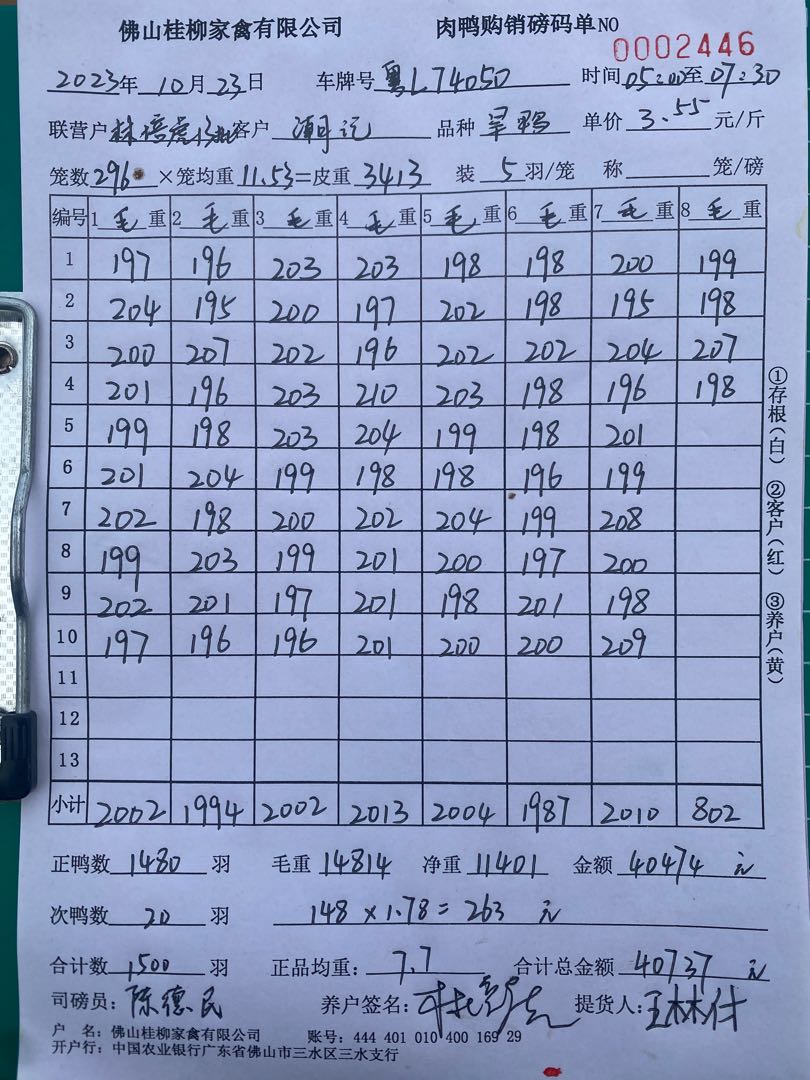 佛山桂柳家禽有限公司 肉鸭购销磅码单NO 0002446
2023年 10月23日 车牌号 粤L74050 时间05:00至07:30
联营户 林信虎 客户 潮记 品种 旱鸭 单价 3.55 元/斤
笼数296×笼均重11.53=皮重3413 装 5 羽/笼 称 笼/磅
编号 1毛重 2毛重 3毛重 4毛重 5毛重 6毛重 7毛重 8毛重
1 197 196 203 203 198 198 200 199
2 204 195 200 197 202 198 195 198
3 200 207 202 196 202 202 204 207
4 201 196 203 210 203 198 196 198
5 199 198 203 204 199 198 201
6 201 204 199 198 198 196 199
7 202 198 200 202 204 199 208
8 199 203 199 201 200 197 200
9 202 201 197 201 198 201 198
10 197 196 196 201 200 200 209
11
12
13
小计 2002 1994 2002 2013 2004 1987 2010 802
正鸭数 1480 羽 毛重 14814 净重 11401 金额 40474 元
次鸭数 20 羽 148×1.78=263 元
合计数 1500 羽 正品均重: 7.7 合计总金额 40737 元
司磅员: 陈德民 养户签名: 提货人: 王林付
户 名: 佛山桂柳家禽有限公司 账号: 444 401 010 400 169 29
开户行: 中国农业银行广东省佛山市三水区三水支行
①存根(白) ②客户(红) ③养户(黄)